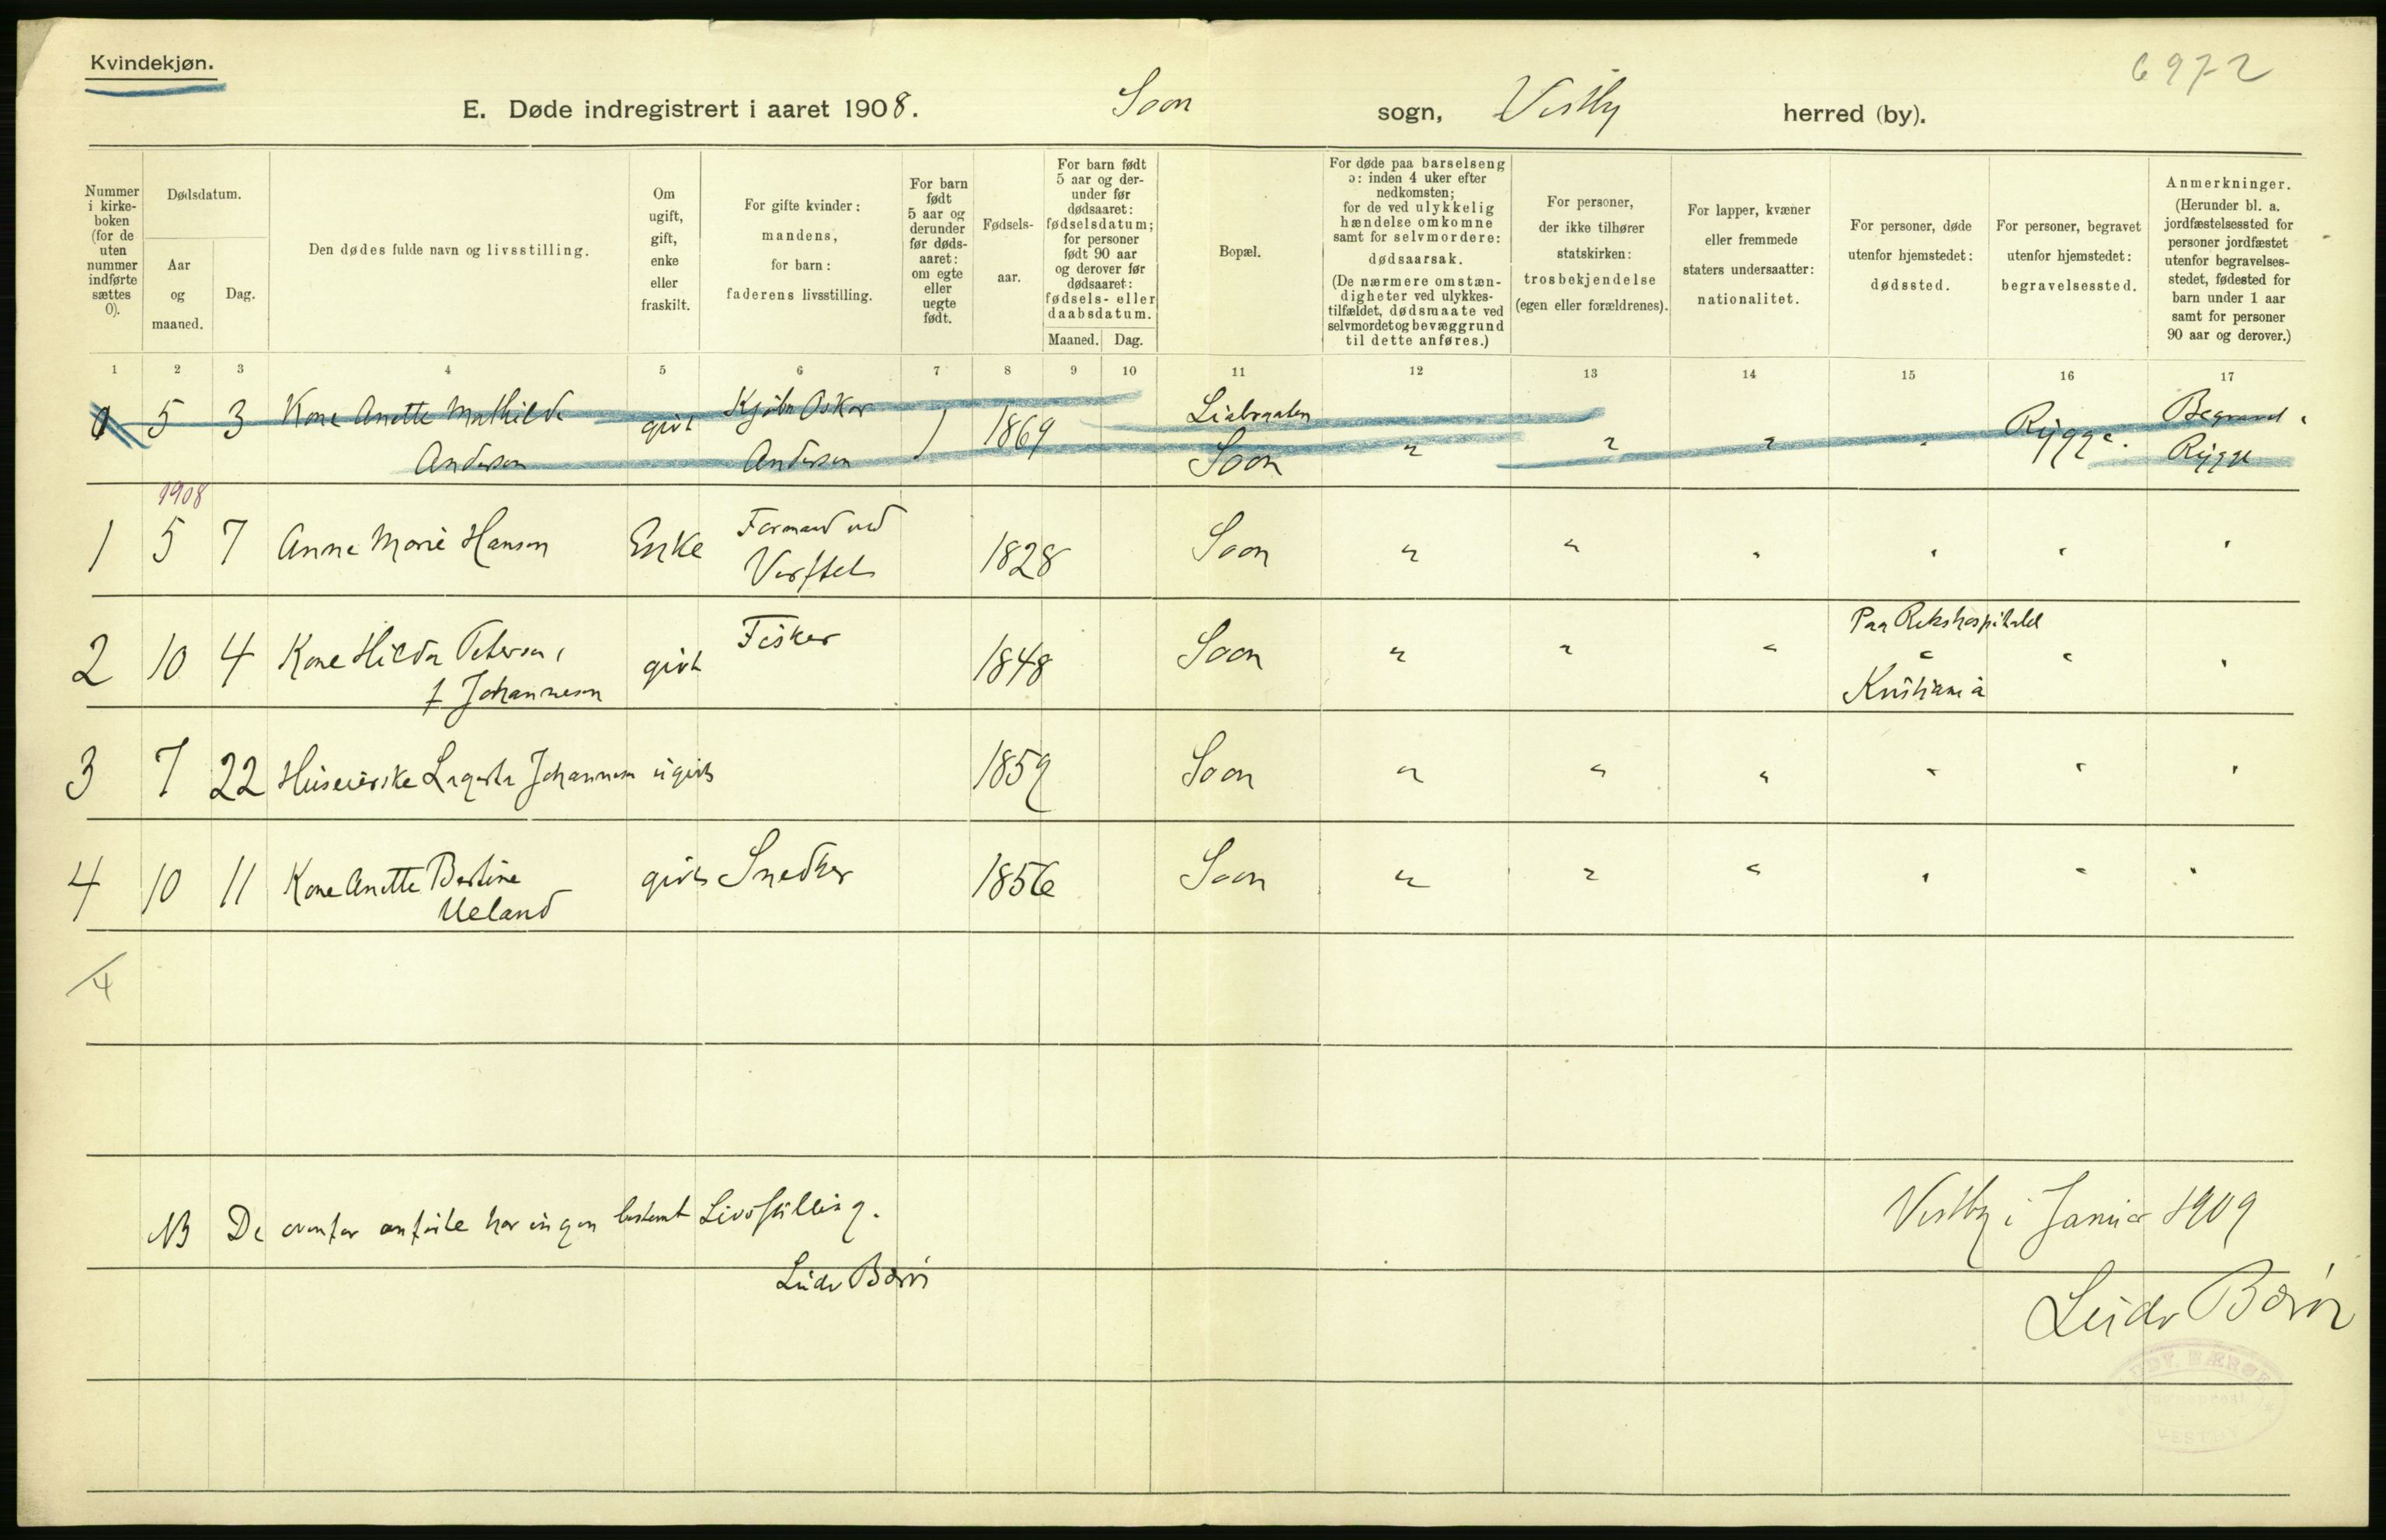 Kvindekjøn.
6972
E. Døde indregistrert i aaret 1908. Soon sogn, Vestby herred (by).
Nummer i kirke-boken (for de uten nummer indførte sættes 0).
Dødsdatum.
Aar og maaned.
Dag.
Den dødes fulde navn og livsstilling.
Om ugift, gift, enke eller fraskilt.
For gifte kvinder: mandens, for barn: faderens livsstilling.
For barn født 5 aar og derunder før døds-aaret: om egte eller uegte født.
Fødsels-aar.
For barn født 5 aar og der-under før dødsaaret: fødselsdatum; for personer født 90 aar og derover før dødsaaret: fødsels- eller daabsdatum.
Maaned. Dag.
Bopæl.
For døde paa barselseng ɔ: inden 4 uker efter nedkomsten; for de ved ulykkelig hændelse omkomne samt for selvmordere: dødsaarsak. (De nærmere omstæn-digheter ved ulykkes-tilfældet, dødsmaate ved selvmordet og bevæggrund til dette anføres.)
For personer, der ikke tilhører statskirken: trosbekjendelse (egen eller forældrenes).
For lapper, kvæner eller fremmede staters undersaatter: nationalitet.
For personer, døde utenfor hjemstedet: dødssted.
For personer, begravet utenfor hjemstedet: begravelsessted.
Anmerkninger. (Herunder bl. a. jordfæstelsessted for personer jordfæstet utenfor begravelses-stedet, fødested for barn under 1 aar samt for personer 90 aar og derover.)
1 2 3 4 5 6 7 8 9 10 11 12 13 14 15 16 17
5 3 Kone Anette Mathilde givt Oskar 1869 Rygge. Begravet
Andersen Andersen Soon " " " " Rygge
1908
1 5 7 Anne Marie Hansen Enke Formand ved 1828 Soon " " " " " "
Verftet
2 10 4 Kone Hilda Petersen, givt Fisker 1848 Soon " " " Paa Rikshospitalet " "
f Johannesen Kristiania
3 7 22 Huseierske Lagerta Johannesen ugivt 1859 Soon " " " " " "
4 10 11 Kone Anette Bertine givt Snedker 1856 Soon " " " " " "
Ueland
4
NB De ovenfor anførte har ingen bestemt Livsstilling.
Vestby i Januar 1909
Ludv Bærøe
Ludv Bærøe
VESTBY